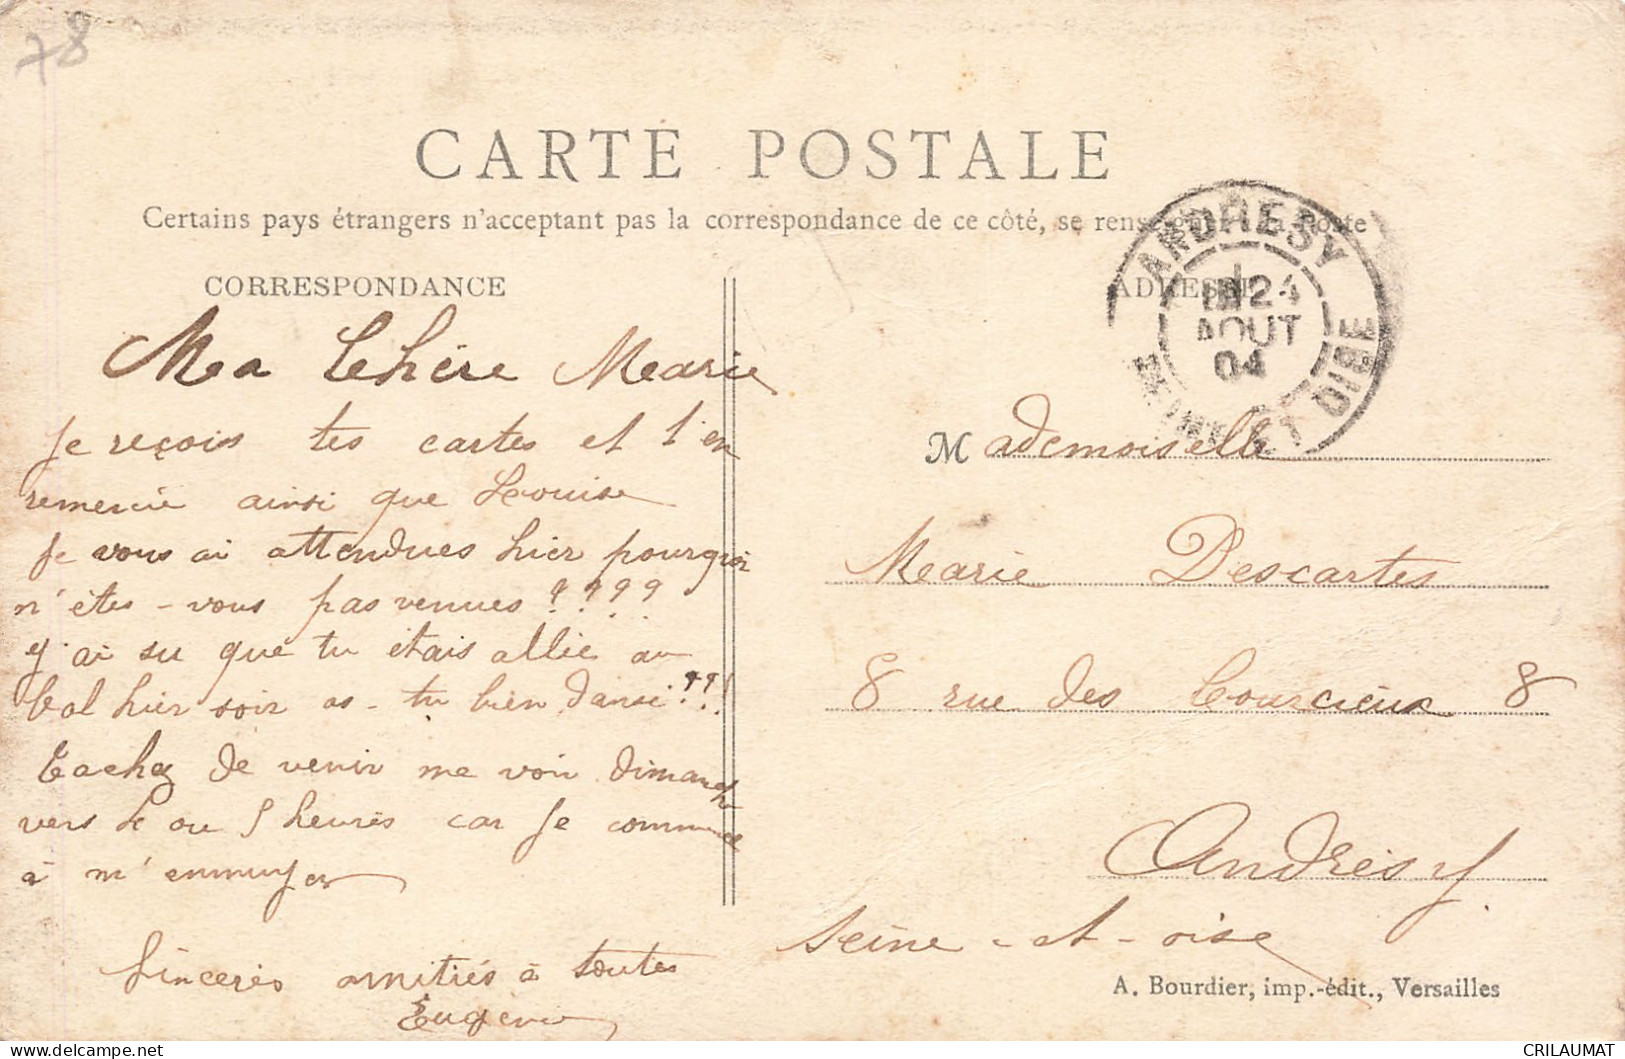 78
CARTE POSTALE
Certains pays étrangers n'acceptant pas la correspondance de ce côté, se renseigner à la Poste
CORRESPONDANCE
Ma Chère Marie
Je reçois tes cartes et t'en
remercie ainsi que Louise
Je vous ai attendues hier pourquoi
n'êtes-vous pas venues ????
J'ai su que tu étais allée au
bal hier soir as-tu bien dansé ??!
Tachez de venir me voir dimanche
vers 4 ou 5 heures car je commence
à m'ennuyer
Sincères amitiés à toutes
Eugénie
ADRESSE
ANDRESY
24
AOUT
04
SEINE ET OISE
Mademoiselle
Marie Descartes
8 rue des Courcieux 8
Andrésy
Seine-et-oise
A. Bourdier, imp.-édit., Versailles
CRILAUMAT